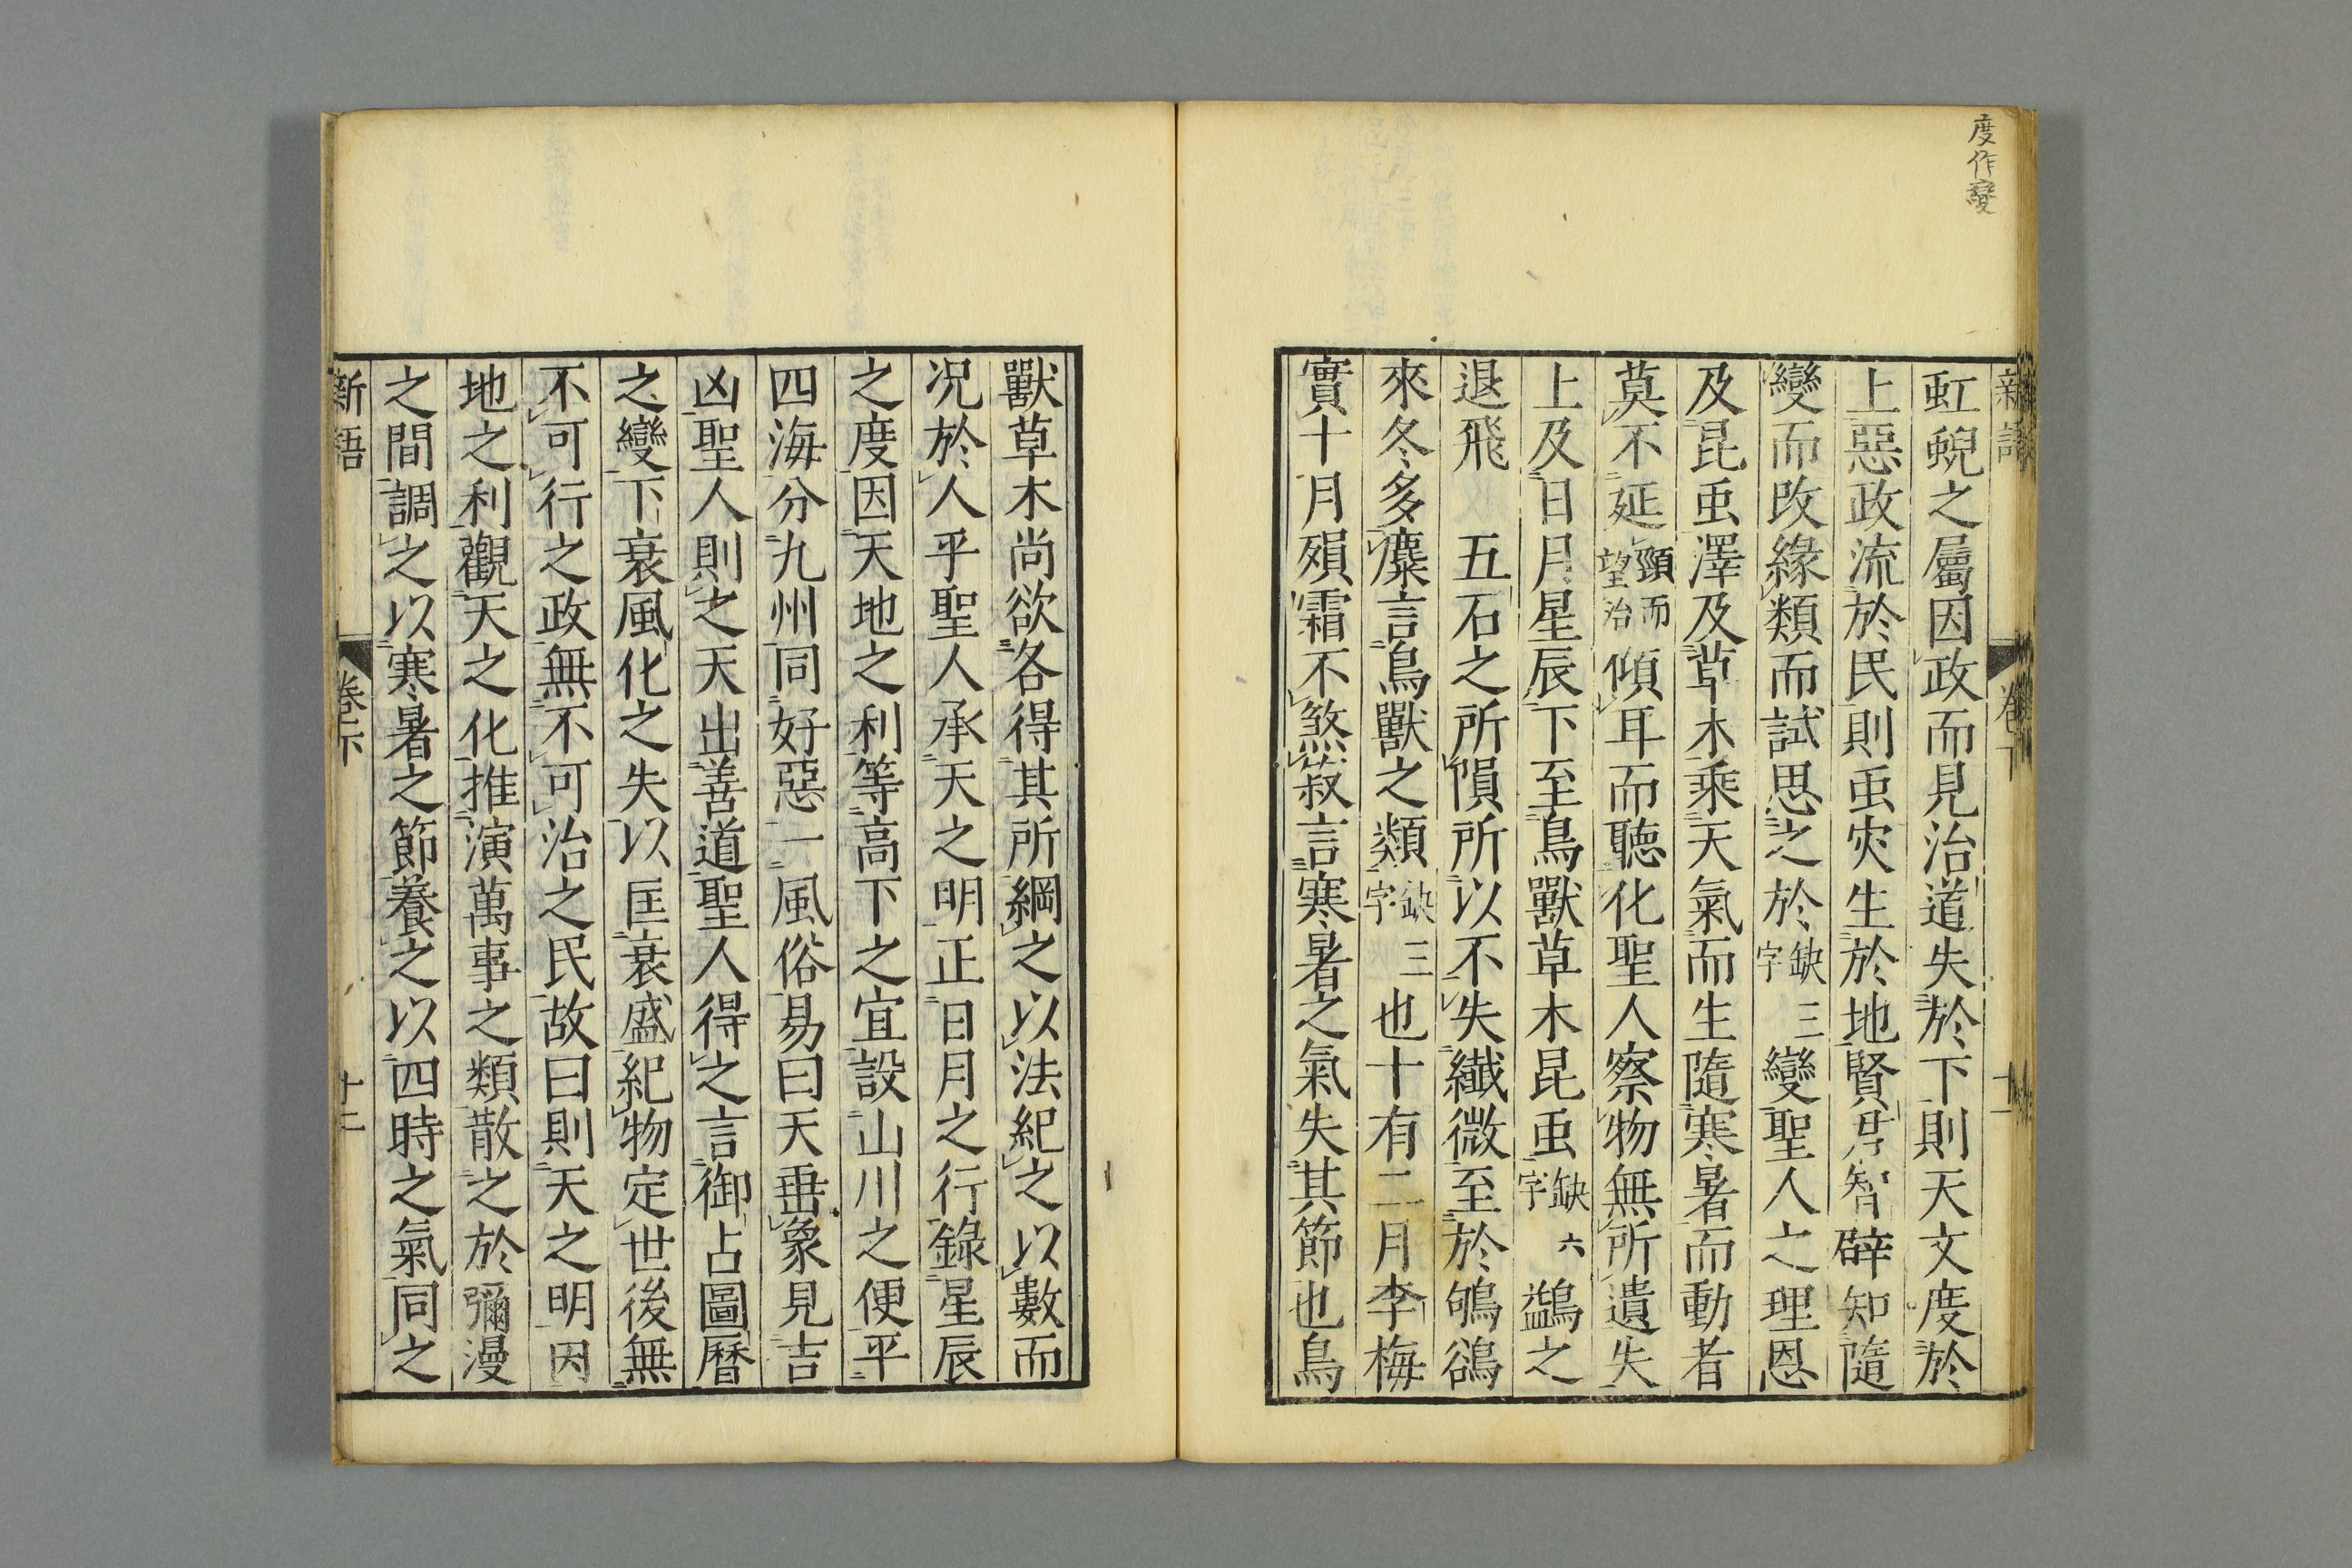 度作變
新語 卷下 十二
虹蜺之屬因政而見治道失於下則天文度於
上惡政流於民則䖝灾生於地賢君智辟知隨
變而改緣類而試思之於缺三字變聖人之理恩
及昆䖝澤及草木乘天氣而生隨寒暑而動者
莫不延頸而望治傾耳而聽化聖人察物無所遺失
上及日月星辰下至鳥獸草木昆䖝缺六字鷁之
退飛 五石之所隕所以不失纖微至於鴝鵒
來冬多麋言鳥獸之類缺三字也十有二月李梅
實十月殞霜不煞菽言寒暑之氣失其節也鳥
獸草木尚欲各得其所綱之以法紀之以數而
况於人乎聖人承天之明正日月之行錄星辰
之度因天地之利等高下之宜設山川之便平
四海分九州同好惡一風俗易曰天垂象見吉
凶聖人則之天出善道聖人得之言御占圖曆
之變下衰風化之失以匡衰盛紀物定世後無
不可行之政無不可治之民故曰則天之明因
地之利觀天之化推演萬事之類散之於彌漫
之間調之以寒暑之節養之以四時之氣同之
新語 卷下 十二